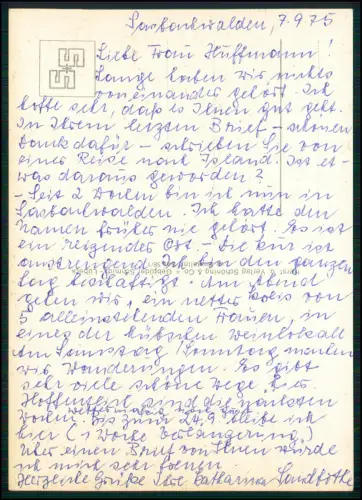 Sasbachwalden, 7.9.75
Liebe Frau Huffmann!
Lange haben wir nichts
voneinander gehört. Ich
hoffe sehr, daß es Ihnen gut geht.
In Ihrem letzten Brief – schönen
Dank dafür – schrieben Sie von
einer Reise nach Island. Ist et-
was daraus geworden?
– Seit 2 Wochen bin ich nun in
Sasbachwalden. Ich hatte den
Namen früher nie gehört. Es ist
ein reizender Ort. – Die Kur ist
anstrengend. Ich bin den ganzen
Tag beschäftigt. Am Abend
gehen wir, ein netter Kreis von
5 alleinstehenden Frauen, in
eines der hübschen Weinlokale.
Am Samstag/Sonntag machen
wir Wanderungen. Es gibt
sehr viele schöne Wege hier.
Hoffentlich sind die nächsten
Wochen wettermäßig noch gut.
Bis zum 24.9. bleibe ich
hier (1 Woche Verlängerung)
Über einen Brief von Ihnen würde
ich mich sehr freuen.
Herzliche Grüße Ihre Katharina
Verlag Schöning & Co + Gebrüder Schmidt, Lübeck